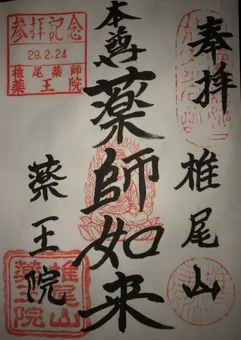 奉拝
椎尾山
本尊
薬師如来
参拝記念
29.2.24
椎尾薬師
薬王院
薬王院
椎尾山
薬王院